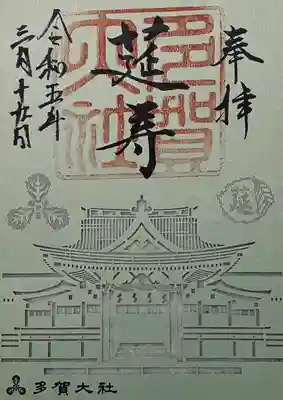 奉拝
延寿
多賀大社
令和五年
三月十九日
莚
多賀大社